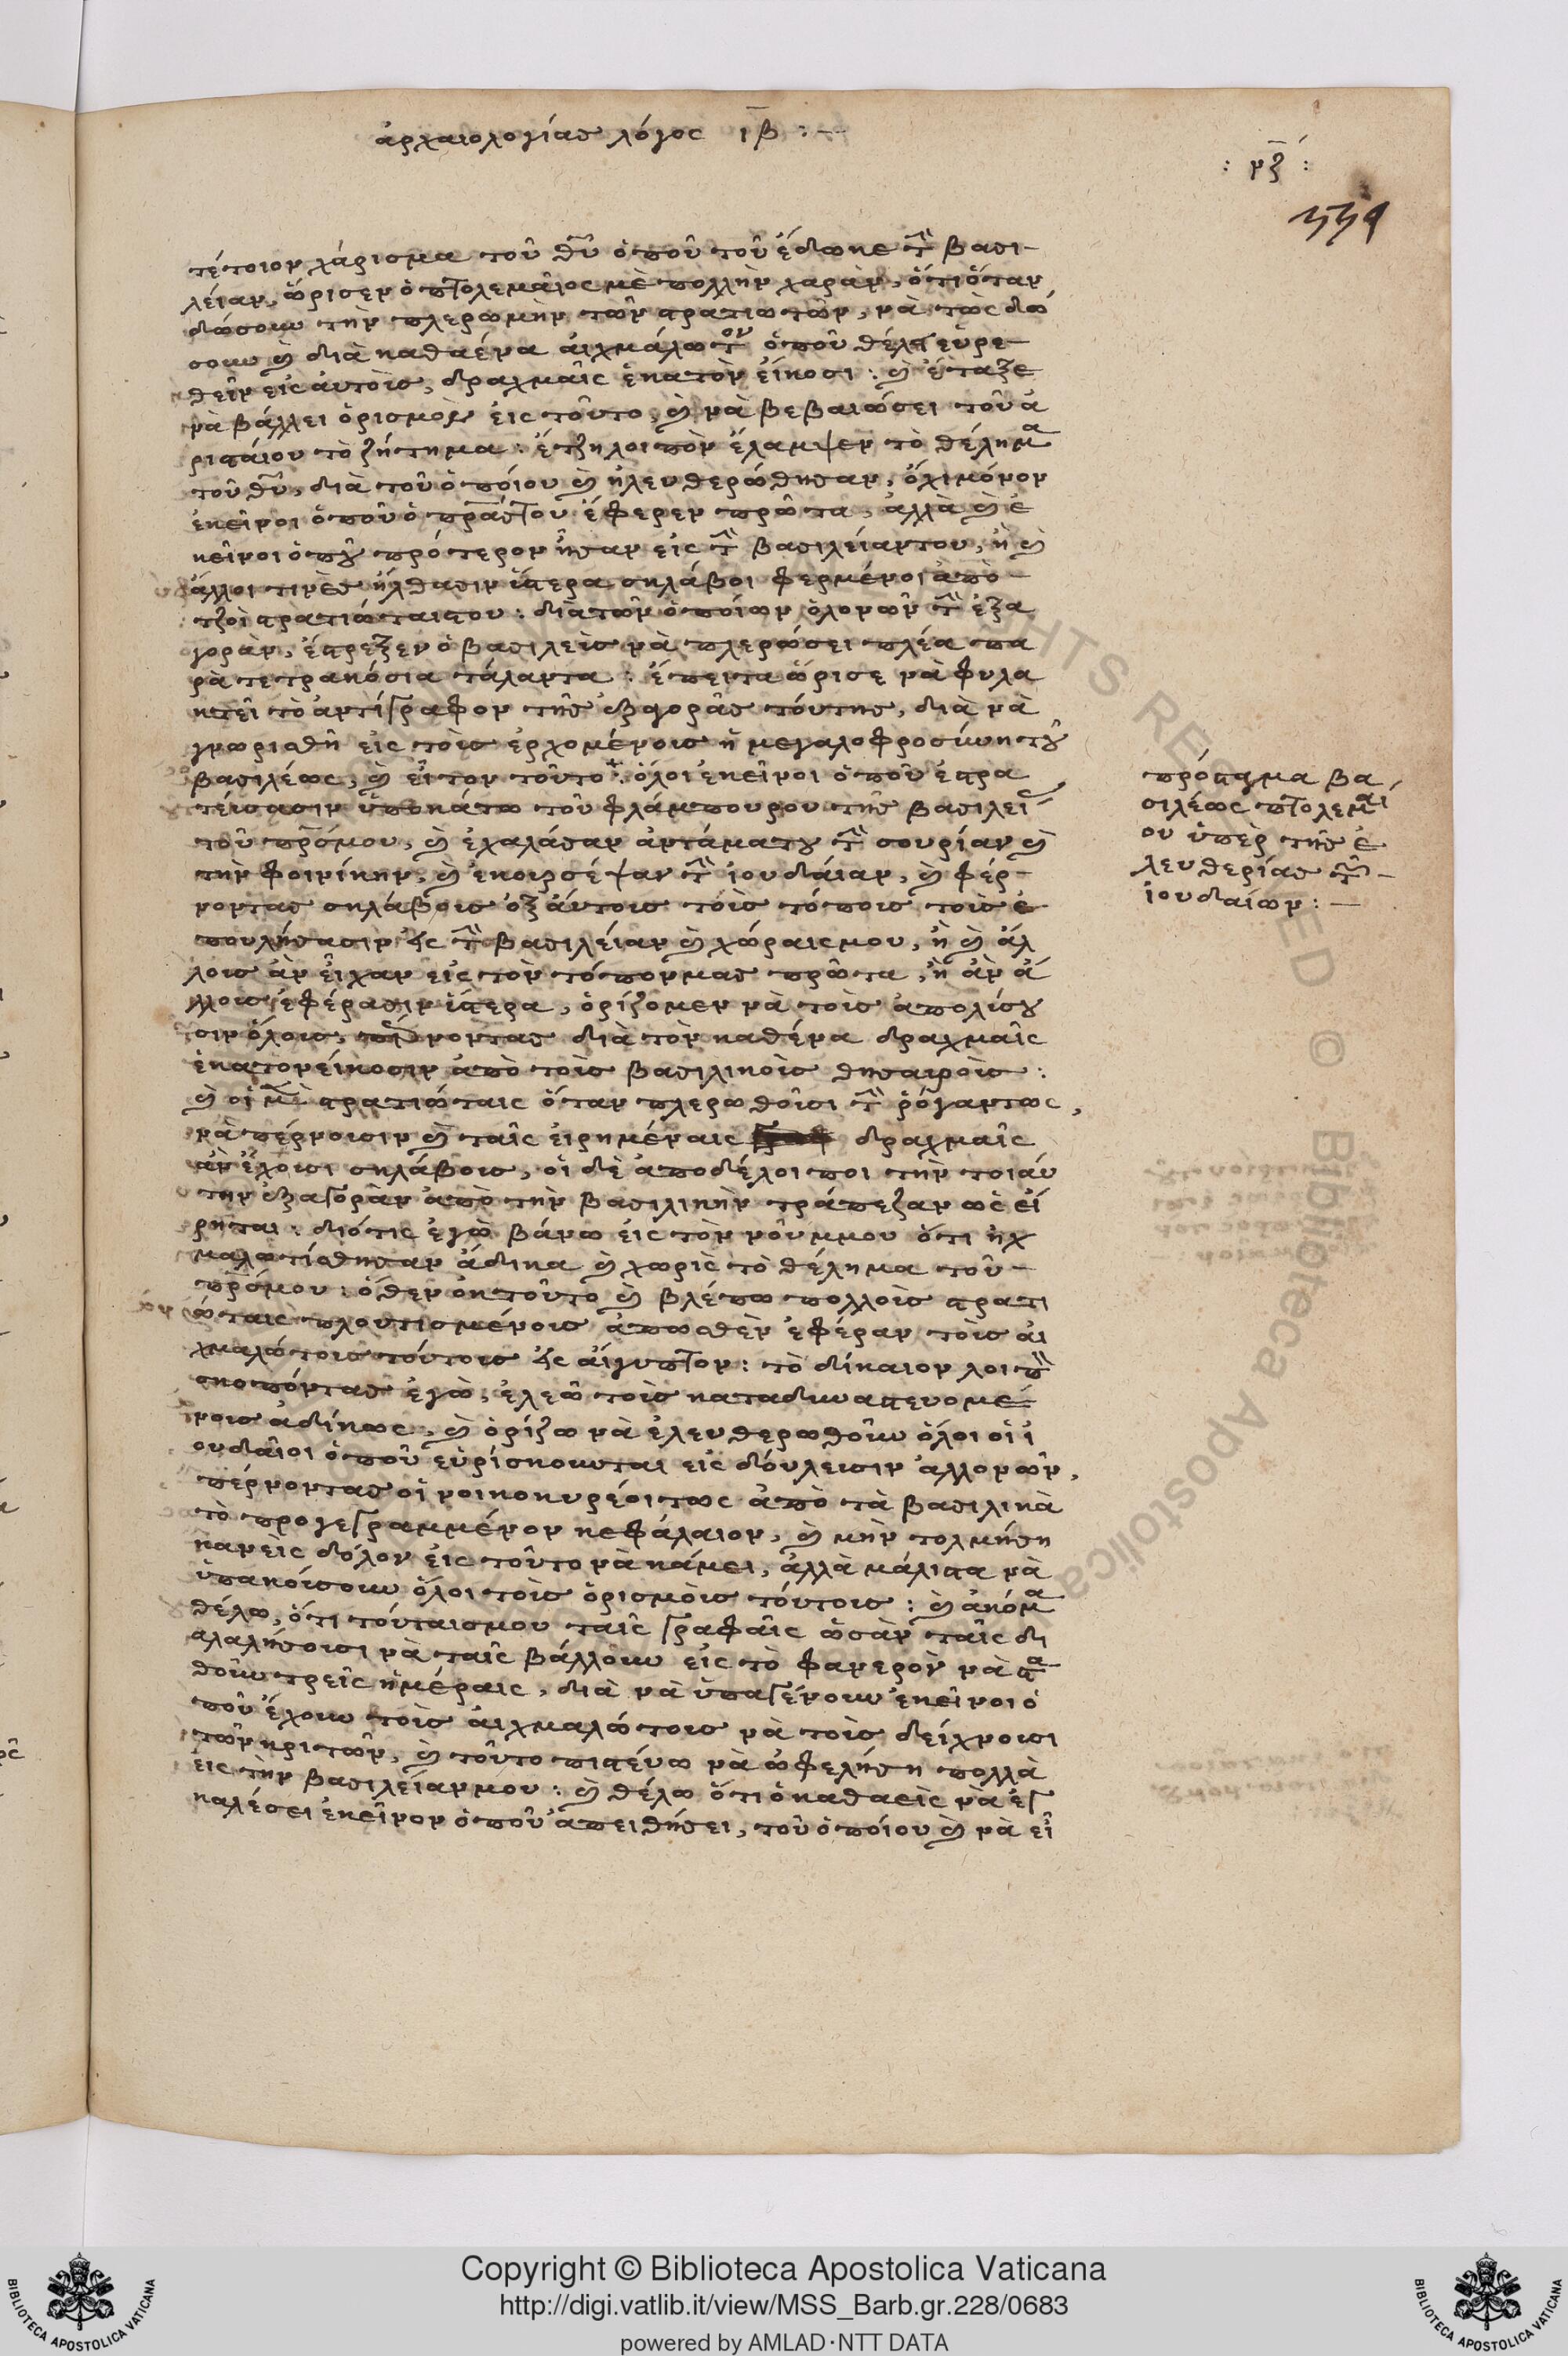 ἀρχαιολογίας λόγος ιβ :—
: ρξ :
339
τέτοιον χάρισμα τοῦ θῦ ὁποῦ τοῦ ἔδωκε τὴ βασι-
λείαν, ὥρισεν ὁ πτολεμαῖος μὲ πολλὴν χαρὰν, ὅτι ὅταν
δώσουν τὴν πλερωμὴν τῶν στρατιωτῶν, νὰ τῶς δώ
σουν καὶ διὰ καθαένα αἰχμάλωτον ὁποῦ θέλει εὑρε-
θεῖν εἰς αὐτοὺς, δραχμαῖς ἑκατὸν εἴκοσι : καὶ ἔταξε
νὰ βάλλει ὁρισμὸν εἰς τοῦτο, καὶ νὰ βεβαιώσει τοῦ ἀ
ρισταίου τὸ ζήτημα : ἔτζη λοιπὸν ἔλαμψεν τὸ θέλημα
τοῦ θῦ, διὰ τοῦ ὁποίου καὶ ἠλευθερώθησαν, ὄχι μόνον
ἐκεῖνοι ὁποῦ ὁ πρασ του ἔφερεν πρῶτα, ἀλλὰ καὶ ἐ
κεῖνοι ὁποῦ πρότερον ἦσαν εἰς τὴ βασιλείαν του, ἢ καὶ
ἄλλοι τινὲς ἤλθασιν ὕστερα σκλάβοι φερμένοι ἀπὸ
τζοὶ στρατιώταις του : διὰ τῶν ὁποίων ὁλονῶν τὴ ἐξα
γορὰν, ἔστρεξεν ὁ βασιλεὺς νὰ πλερώσει πλέα πα
ρὰ τετρακόσια τάλαντα : ἔπειτα ὥρισε νὰ φυλα
κτεῖ τὸ ἀντίγραφον τῆς ἐξαγορᾶς τούτης, διὰ νὰ
γνωρισθῆ εἰς τοὺς ἐρχομένους ἡ μεγαλοφροσύνη τοῦ
βασιλέως, καὶ εἶτον τοῦτο : ὅλοι ἐκεῖνοι ὁποῦ ἐστρα
τεύσασιν ὑποκάτω τοῦ φλάμπουρου τῆς βασιλεί
τοῦ πρσ μου, καὶ ἐχαλάσαν ἀντάμα του τὴ σουρίαν καὶ
τὴν φοινίκην, καὶ ἐκουρσέψαν τὴ ἰουδαίαν, καὶ φέρ-
νοντας σκλάβους ἐξ αὐτοὺς τοὺς τόπους τοὺς ἐ
πουλήσασιν εἰς τὴ βασιλείαν καὶ χώραις μου, ἢ καὶ ἀλ
λους ἂν εἶχαν εἰς τὸν τόπον μας πρῶτα, ἢ ἂν ἀ
λλους ἐφέρασιν ὕστερα, ὁρίζομεν νὰ τοὺς ἀπολύσου
σιν ὅλους, πέρνοντας διὰ τὸν καθένα δραχμαῖς
ἑκατὸν εἴκοσιν ἀπὸ τοὺς βασιλικοὺς θησαυροὺς :
καὶ οἱ μὲν στρατιώταις ὅταν πλερωθοῦσι τὴ ῥόγαν τως,
νὰ πέρνουσιν καὶ ταῖς εἰρημέναις δραχμαῖς
ἂν ἔχουσι σκλάβους, οἱ δὲ ἀποδέλοιποι τὴν τοιαύ
την ἐξαγορὰν ἀπὸ τὴν βασιλικὴν τράπεζαν ὡς εἴ
ρηται : διότις ἐγὼ βάνω εἰς τὸν νοῦν μου ὅτι ἠχ
μαλωτίσθησαν ἄδικα καὶ χωρὶς τὸ θέλημα τοῦ-
πρσ μου : ὅθεν ἐκ τοῦτο καὶ βλέπω πολλοὺς στρατι
ώταις πλουτισμένους ἀπωσθὲν ἐφέραν τοὺς αἰ
χμαλώτους τούτους εἰς αἴγυπτον : τὸ δίκαιον λοιπὸ
σκοπόντας ἐγὼ, ἐλεῶ τοὺς καταδυναστευομέ
νους ἀδίκως, καὶ ὁρίζω νὰ ἐλευθερωθοῦν ὅλοι οἱ ἰ
ουδαῖοι ὁποῦ εὑρίσκουνται εἰς δούλευσιν ἀλλονῶν,
πέρνοντας οἱ νοικοκυρέοι τως ἀπὸ τὰ βασιλικὰ
τὸ προγεγραμμένον κεφάλαιον, καὶ μὴν τολμήση
κανεὶς δόλον εἰς τοῦτο νὰ κάμει, ἀλλὰ μάλιστα νὰ
ὑπακούσουν ὅλοι τοὺς ὁρισμοὺς τούτους : καὶ ἀκόμα
θέλω, ὅτι τούταις μου ταῖς γραφαῖς ὡσὰν ταῖς δι
αλαλήσουσι νὰ ταῖς βάλλουν εἰς τὸ φανερὸν νὰ στα
θοῦν τρεῖς ἡμέραις, διὰ νὰ ὑπαγένουν ἐκεῖνοι ὁ
ποῦ ἔχουν τοὺς αἰχμαλώτους νὰ τοὺς δείχνουσι
τῶν κριτῶν, καὶ τοῦτο πιστεύω νὰ ὠφελήση πολλὰ
εἰς τὴν βασιλείαν μου : καὶ θέλω ὅτι ὁ καθαεὶς νὰ ἐγ
καλέσει ἐκεῖνον ὁποῦ ἀπειθήσει, τοῦ ὁποίου καὶ νὰ εἶ
πρόσταγμα βα
σιλέως πτολεμαί
ου ὑπὲρ τῆς ἐ
λευθερίας τῶν
ἰουδαίων :—
RIGHTS RESERVED © Biblioteca Apostolica
Copyright © Biblioteca Apostolica Vaticana
http://digi.vatlib.it/view/MSS_Barb.gr.228/0683
powered by AMLAD·NTT DATA
BIBLIOTECA APOSTOLICA VATICANA
BIBLIOTECA APOSTOLICA VATICANA